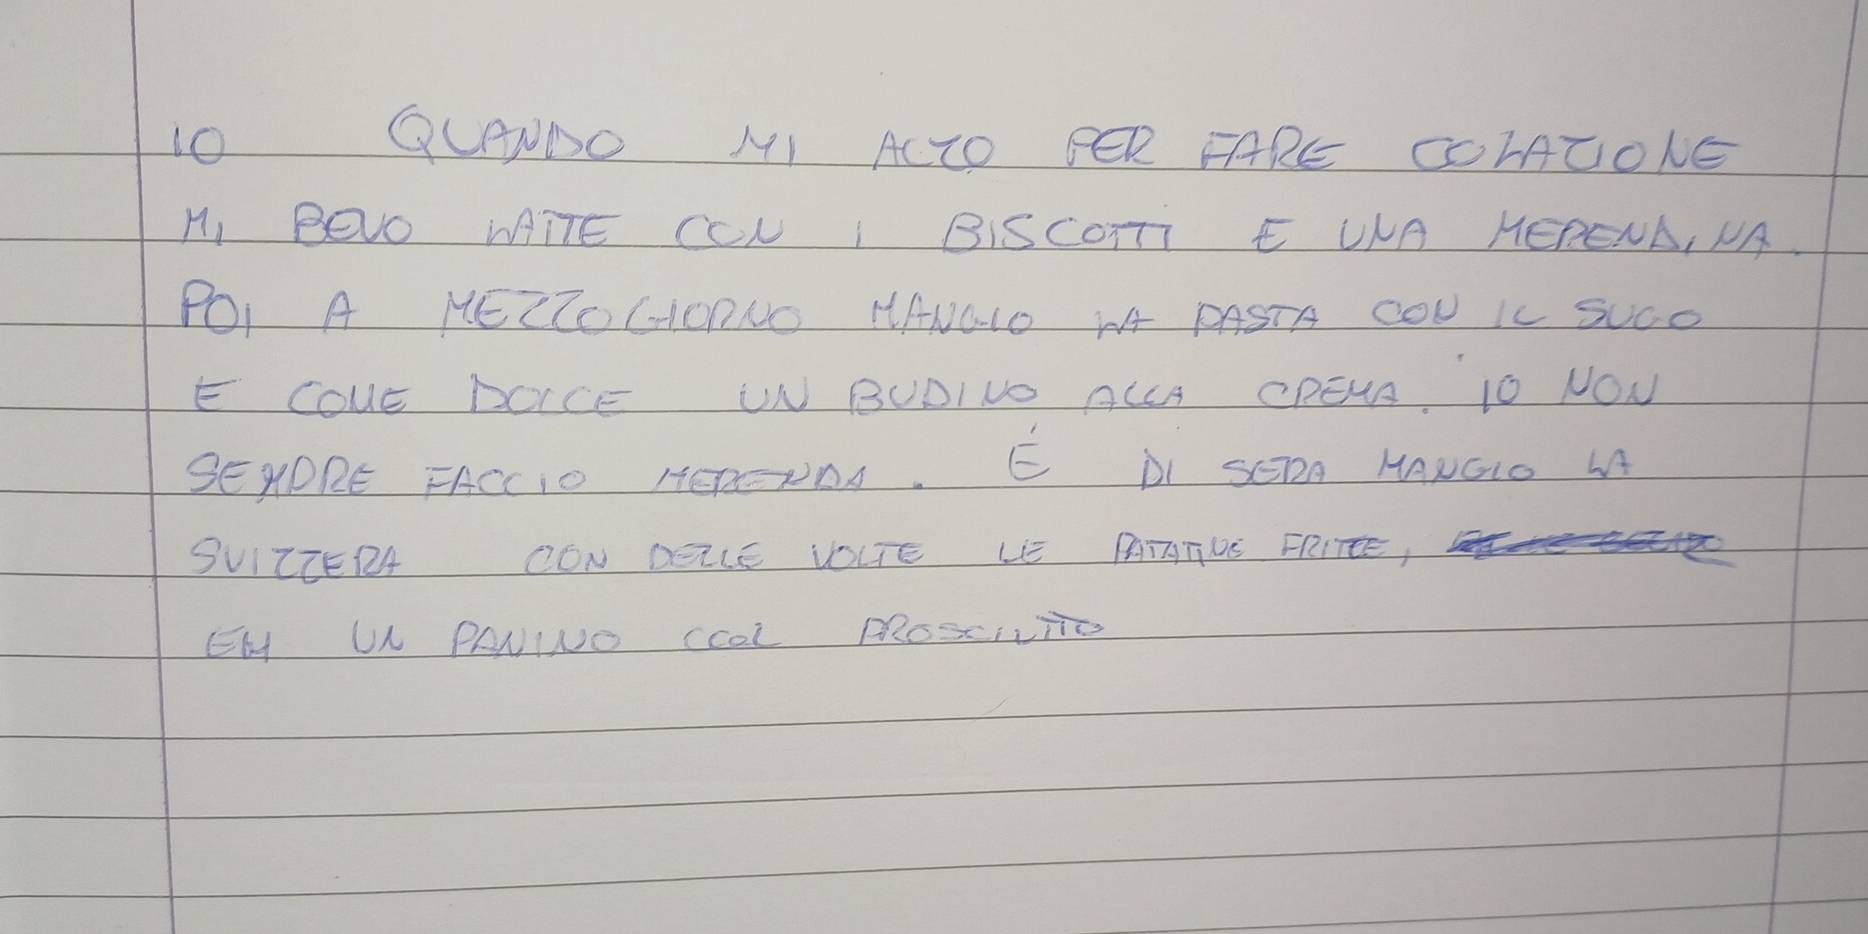 IO QUANDO MI ALZO PER FARE COLAZIONE
MI BEVO LATTE CON I BISCOTTI E UNA MERENDINA.
POI A MEZZOGIORNO MANGIO LA PASTA CON IL SUGO
E COME DOLCE UN BUDINO ALLA CREMA. IO NON
SEMPRE FACCIO MERENDA. É DI SERA MANGIO LA
SVIZZERA CON DELLE VOLTE LE PATATINE FRITTE,
UN PANINO CCOL PROSCIUTTO